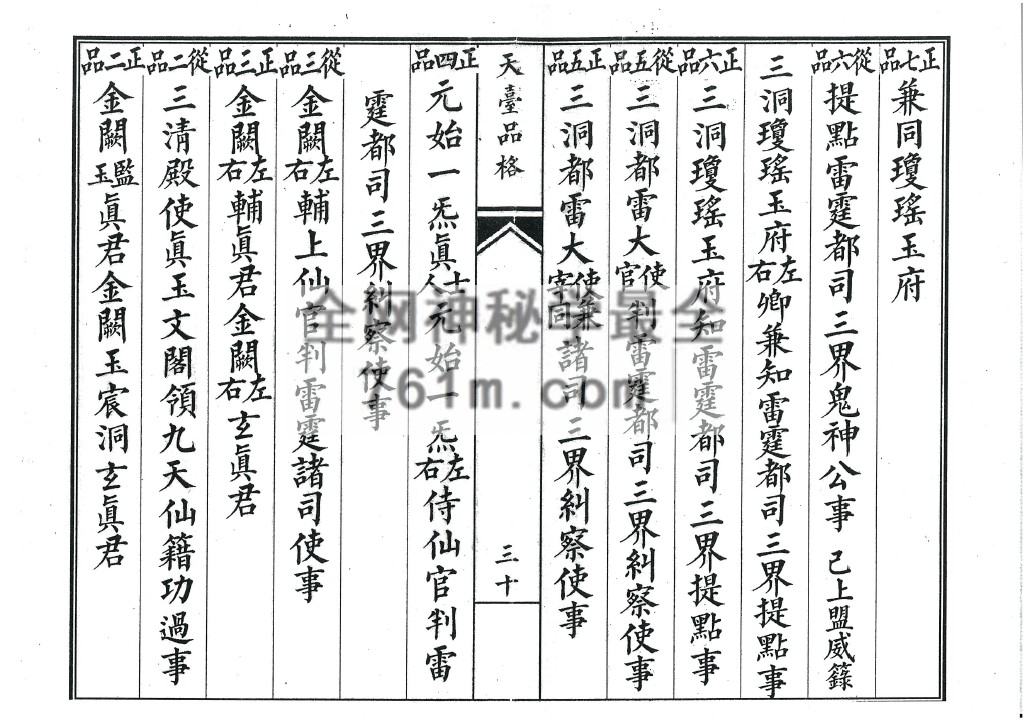 正七品
兼同瓊瑤玉府
從六品
提點雷霆都司三界鬼神公事 已上盟威籙
三洞瓊瑤玉府左右卿兼知雷霆都司三界提點事
正六品
三洞瓊瑤玉府知雷霆都司三界提點事
從五品
三洞都雷大使官判雷霆都司三界糾察使事
正五品
三洞都雷大使兼宰同諸司三界糾察使事
天臺品格
三十
正四品
元始一炁眞士人元始一炁左右侍仙官判雷
霆都司三界糾察使事
從三品
金闕左右輔上仙官判雷霆諸司使事
正三品
金闕左右輔眞君金闕左右玄眞君
從二品
三清殿使眞玉文閣領九天仙籍功過事
正二品
金闕鑑玉眞君金闕玉宸洞玄眞君
全网神秘学最全